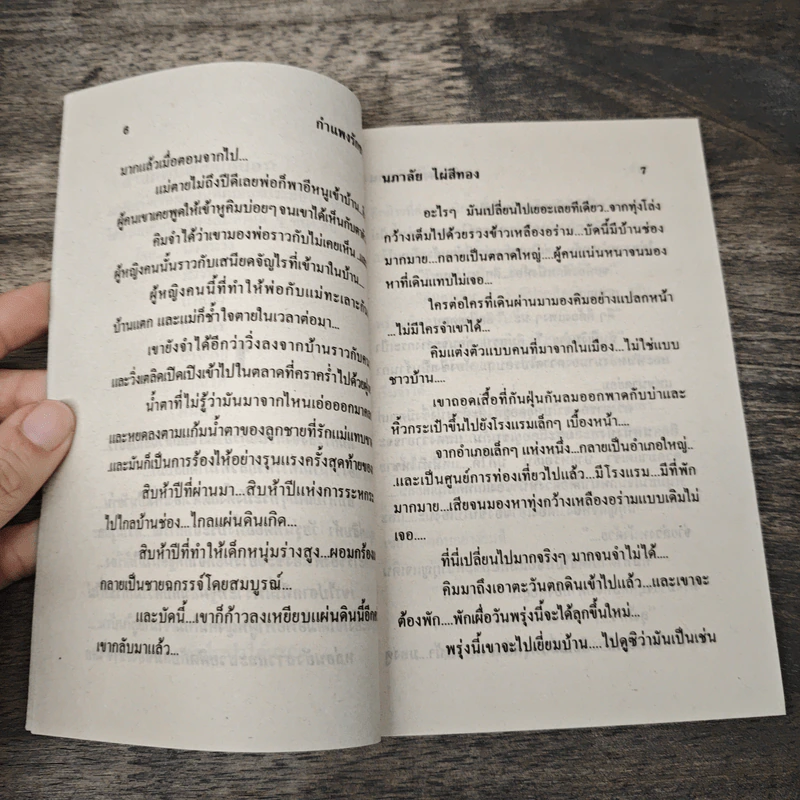 6
กำแพงรัก
มากแล้วเมื่อตอนจากไป...
แม่ตายไม่ถึงปีดีเลยพ่อก็พาอีหนูเข้าบ้าน..
ผู้คนเขาเคยพูดให้เข้าหูคิมบ่อยๆ จนเขาได้เห็นกับตา
คิมจำได้ว่าเขามองพ่อราวกับไม่เคยเห็น..
ผู้หญิงคนนั้นราวกับเสนียดจัญไรที่เข้ามาในบ้าน...
ผู้หญิงคนนี้ที่ทำให้พ่อกับแม่ทะเลาะกัน
บ้านแตก และแม่ก็ช้ำใจตายในเวลาต่อมา...
เขายังจำได้อีกว่าวิ่งลงจากบ้านราวกับ
และวิ่งเตลิดเปิดเปิงเข้าไปในตลาดที่คราคร่ำไปด้วย
น้ำตาที่ไม่รู้ว่ามันมาจากไหนเอ่อออกมา
และหยดลงตามแก้มน้ำตาของลูกชายที่รักแม่แทบ
และมันก็เป็นการร้องไห้อย่างรุนแรงครั้งสุดท้ายของ
สิบห้าปีที่ผ่านมา...สิบห้าปีแห่งการระหก
ไปไกลบ้านช่อง...ไกลแผ่นดินเกิด...
สิบห้าปีที่ทำให้เด็กหนุ่มร่างสูง...ผอมกร้อง
กลายเป็นชายฉกรรจ์โดยสมบูรณ์...
และบัดนี้...เขาก็ก้าวลงเหยียบแผ่นดินนี้อีก
เขากลับมาแล้ว...
นภาลัย ไผ่สีทอง
7
อะไรๆ มันเปลี่ยนไปเยอะเลยทีเดียว..จากทุ่งโล่ง
กว้างเต็มไปด้วยรวงข้าวเหลืองอร่าม...บัดนี้มีบ้านช่อง
มากมาย...กลายเป็นตลาดใหญ่....ผู้คนแน่นหนาจนมอง
หาที่เดินแทบไม่เจอ...
ใครต่อใครที่เดินผ่านมามองคิมอย่างแปลกหน้า
...ไม่มีใครจำเขาได้...
คิมแต่งตัวแบบคนที่มาจากในเมือง...ไม่ใช่แบบ
ชาวบ้าน....
เขาถอดเสื้อที่กันฝุ่นกันลมออกพาดกับบ่าและ
หิ้วกระเป๋าขึ้นไปยังโรงแรมเล็กๆ เบื้องหน้า....
จากอำเภอเล็กๆ แห่งหนึ่ง...กลายเป็นอำเภอใหญ่..
.และเป็นศูนย์การท่องเที่ยวไปแล้ว...มีโรงแรม...มีที่พัก
มากมาย...เสียจนมองหาทุ่งกว้างเหลืองอร่ามแบบเดิมไม่
เจอ....
ที่นี่เปลี่ยนไปมากจริงๆ มากจนจำไม่ได้....
คิมมาถึงเอาตะวันตกดินเข้าไปแล้ว...และเขาจะ
ต้องพัก....พักเผื่อวันพรุ่งนี้จะได้ลุกขึ้นใหม่...
พรุ่งนี้เขาจะไปเยี่ยมบ้าน....ไปดูซิว่ามันเป็นเช่น